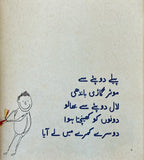 پیلے دوپٹے سے
موٹر گاڑی باندھی
لال دوپٹے سے بھالو
دونوں کو کھینچتا ہوا
دوسرے کمرے میں لے آیا